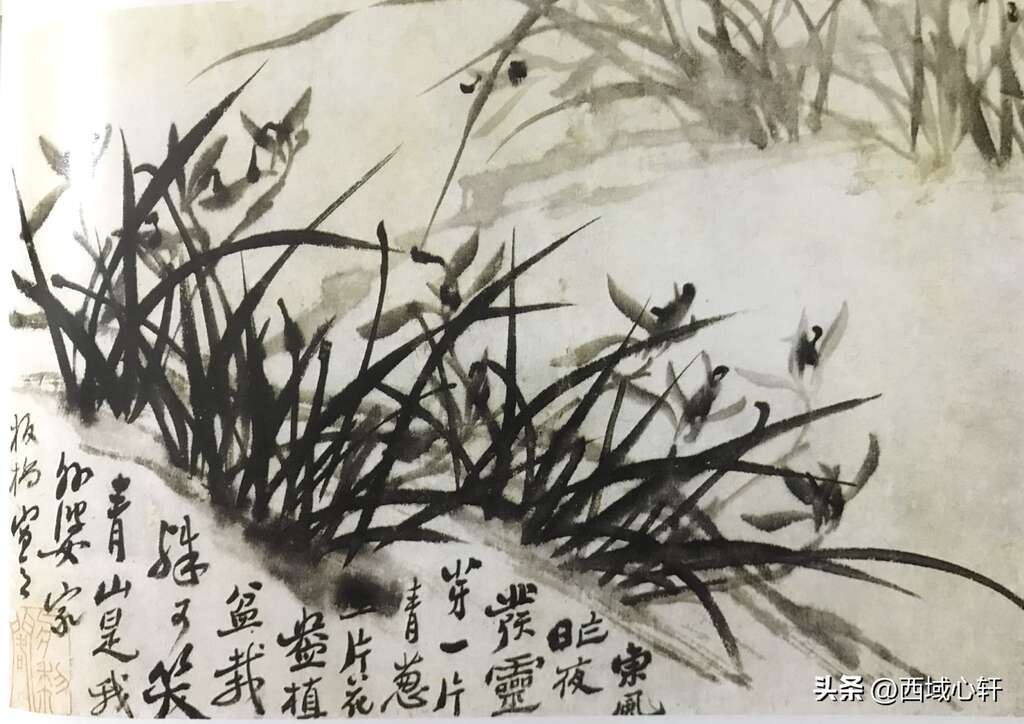 東風
昨夜
發靈
芽一片
青葱
一片花
盎植
盆栽
殊可笑
青山是我
外婆家
板橋
头条 @西域心轩